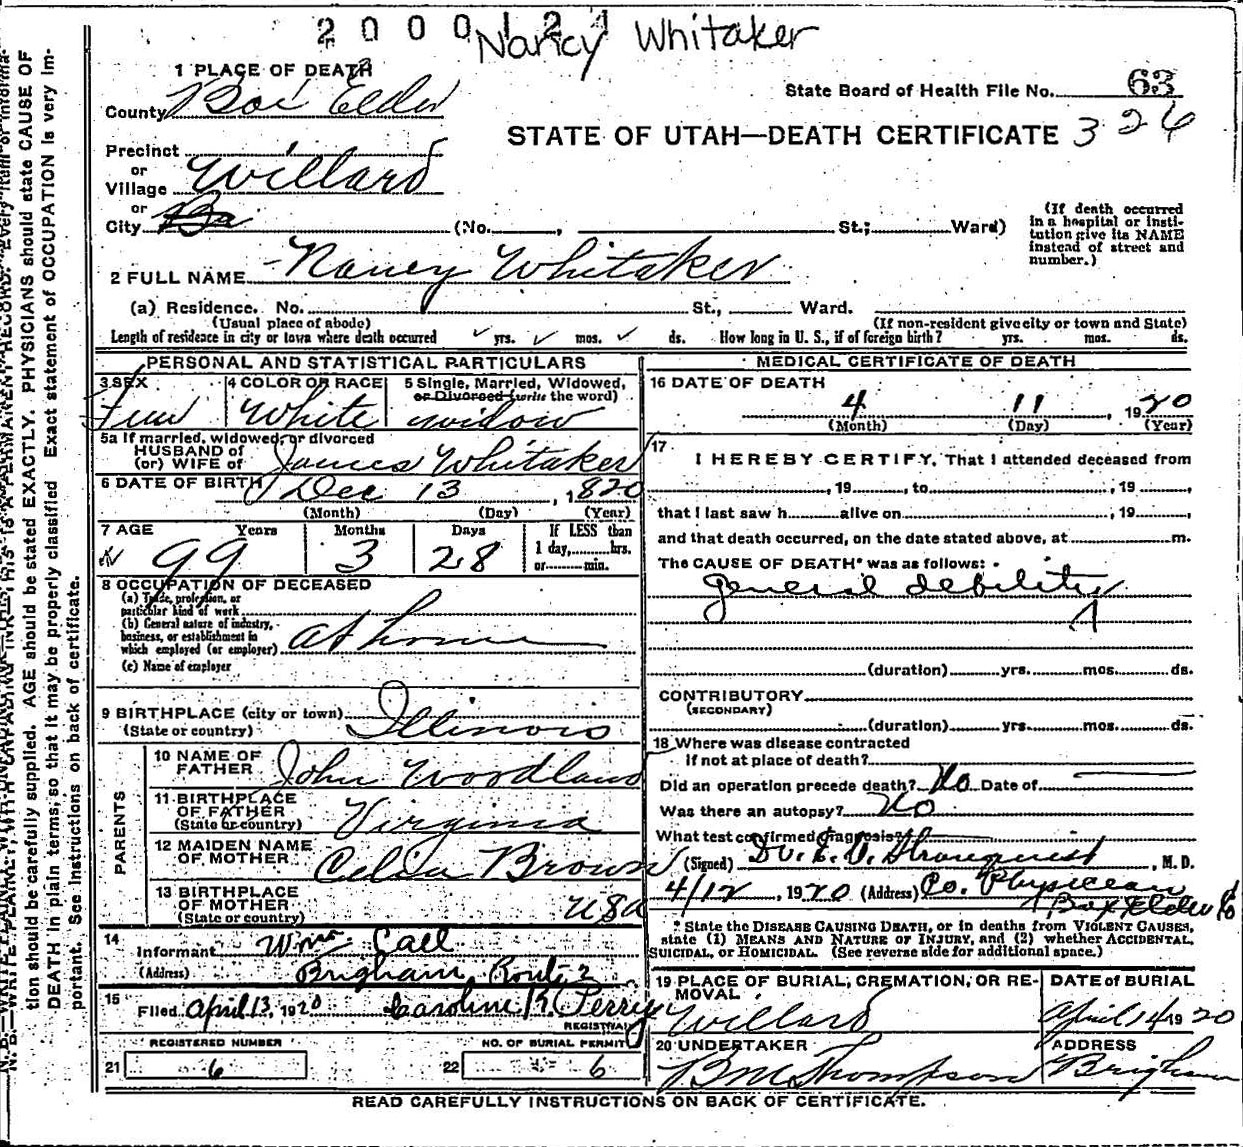 2 0 0 0 1 2 1
Nancy Whitaker
1 PLACE OF DEATH
County Box Elder
State Board of Health File No. 63
STATE OF UTAH—DEATH CERTIFICATE 326
Precinct
or
Village Willard
or
City (No. , St.; Ward)
(If death occurred
in a hospital or insti-
tution give its NAME
instead of street and
number.)
2 FULL NAME Nancy Whitaker
(a) Residence. No. St., Ward.
(Usual place of abode) (If non-resident give city or town and State)
Length of residence in city or town where death occurred yrs. mos. ds. How long in U. S., if of foreign birth? yrs. mos. ds.
PERSONAL AND STATISTICAL PARTICULARS
3 SEX Fem
4 COLOR OR RACE White
5 Single, Married, Widowed,
or Divorced (write the word)
widow
5a If married, widowed, or divorced
HUSBAND of
(or) WIFE of James Whitaker
6 DATE OF BIRTH Dec 13, 1820
(Month) (Day) (Year)
7 AGE Years Months Days If LESS than
1 day, hrs.
or min.
99 3 28
8 OCCUPATION OF DECEASED
(a) Trade, profession, or
particular kind of work
(b) General nature of industry,
business, or establishment in
which employed (or employer) at home
(c) Name of employer
9 BIRTHPLACE (city or town)
(State or country) Illinois
PARENTS
10 NAME OF
FATHER John Woodland
11 BIRTHPLACE
OF FATHER
(State or country) Virginia
12 MAIDEN NAME
OF MOTHER Celia Brown
13 BIRTHPLACE
OF MOTHER
(State or country) USA
14
Informant Wm Call
(Address) Brigham, Route 2
15
Filed April 13, 1920 Caroline K. Perry
REGISTRAR
REGISTERED NUMBER
21 6
NO. OF BURIAL PERMIT
22 6
MEDICAL CERTIFICATE OF DEATH
16 DATE OF DEATH
4 11, 1920
(Month) (Day) (Year)
17
I HEREBY CERTIFY, That I attended deceased from
, 19 , to , 19 ,
that I last saw h alive on , 19 ,
and that death occurred, on the date stated above, at m.
The CAUSE OF DEATH* was as follows:
general debility
(duration) yrs. mos. ds.
CONTRIBUTORY
(SECONDARY)
(duration) yrs. mos. ds.
18 Where was disease contracted
If not at place of death?
Did an operation precede death? No Date of
Was there an autopsy? No
What test confirmed diagnosis?
(Signed) Dr. , M. D.
4/12, 1920 (Address) Co. Physician
Box Elder Co
* State the DISEASE CAUSING DEATH, or in deaths from VIOLENT CAUSES,
state (1) MEANS AND NATURE OF INJURY, and (2) whether ACCIDENTAL,
SUICIDAL, or HOMICIDAL. (See reverse side for additional space.)
19 PLACE OF BURIAL, CREMATION, OR RE-
MOVAL
Willard
DATE OF BURIAL
April 14 1920
20 UNDERTAKER
B M Thompson
ADDRESS
Brigham
READ CAREFULLY INSTRUCTIONS ON BACK OF CERTIFICATE.
tion should be carefully supplied. AGE should be stated EXACTLY. PHYSICIANS should state CAUSE OF
DEATH in plain terms, so that it may be properly classified. Exact statement of OCCUPATION is very im-
portant. See instructions on back of certificate.